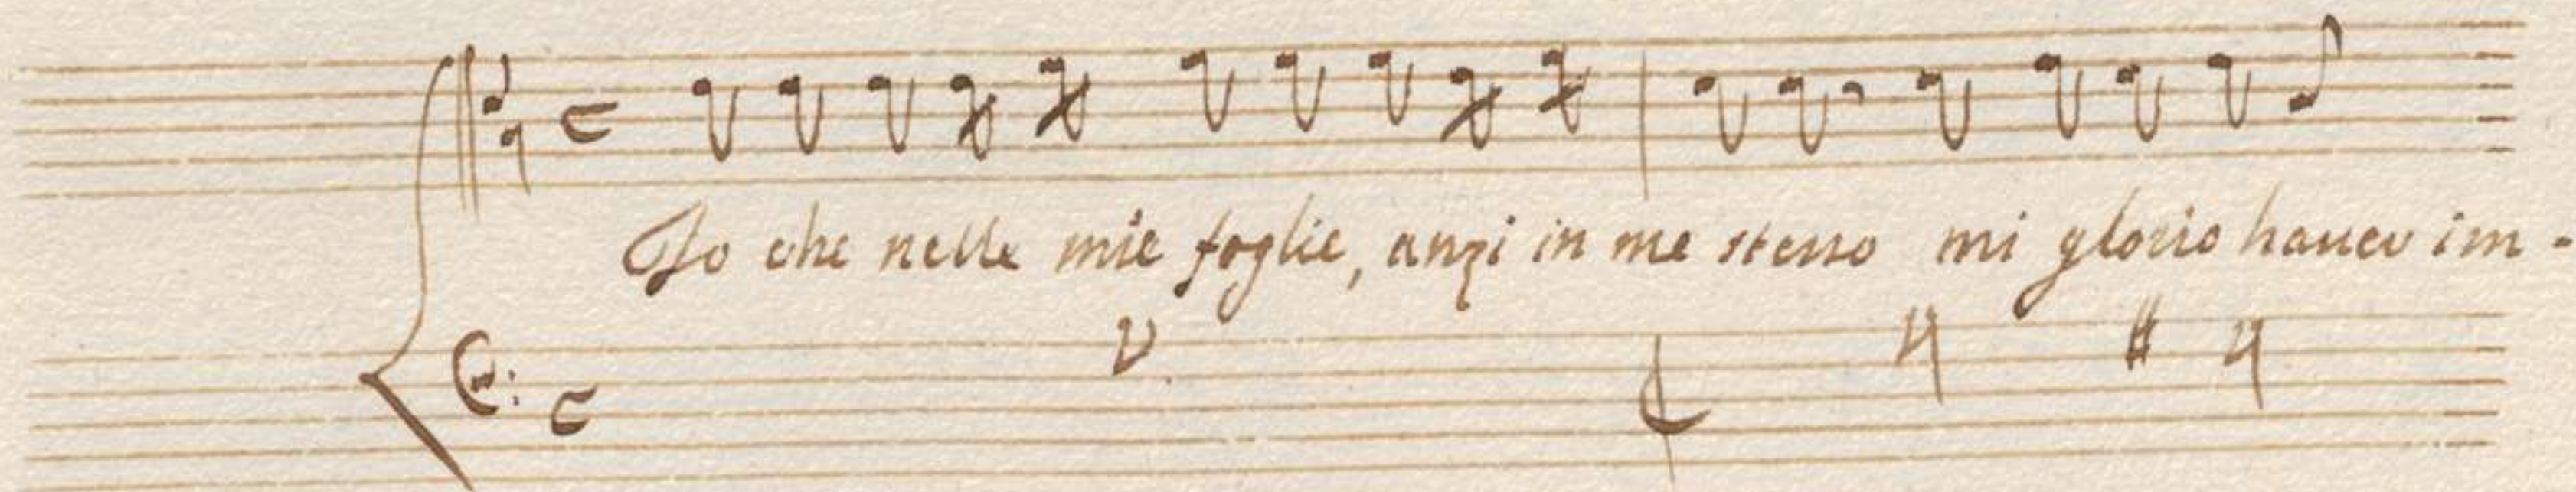 Io che nelle mie foglie, anzi in me stesso mi glorio hauer im-